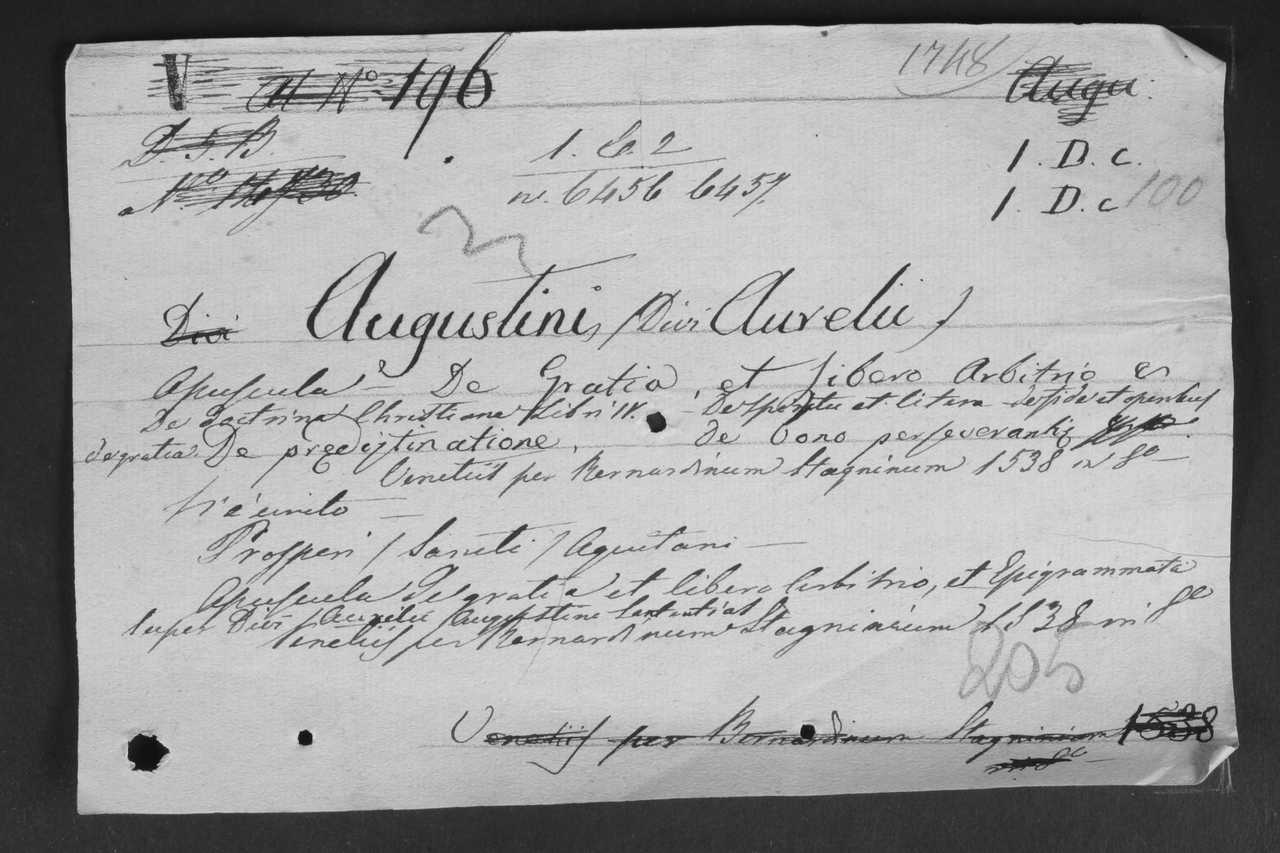 V N.o 196 1748 Augu.
D. S. B. 1. C. 2 1. D. c.
N.o n. 6456 6457. 1. D. c 100
Divi Augustini (Divi Aurelii)
Apuscula De Gratia, et libero Arbitrio
De doctrina Christiana Libri IV. de Spiritu et litera de fide et operibus
de gratia De predistinatione, de bono perseverantie
Venetiis per Bernardinum Stagninum 1538 in 8o
Si è unito
Prosperi / Sancti / Aquitani
Apuscula De gratia et libero arbitrio, et Epigrammata
super Divi Aurelii Augustini Sententias
Venetiis per Bernardinum Stagninum 1538 in 8o
205
Venetiis per Bernardinum Stagninum 1538
in 8o